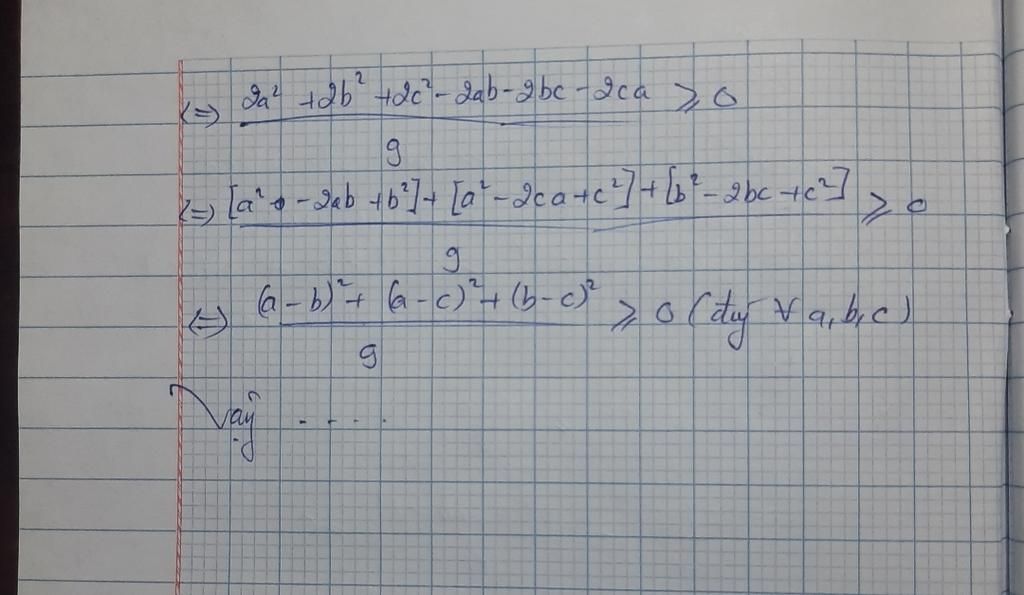 ⇔ 2a² + 2b² + 2c² - 2ab - 2bc - 2ca ≥ 0
9
⇔ [a² - 2ab + b²] + [a² - 2ca + c²] + [b² - 2bc + c²] ≥ 0
9
⇔ (a - b)² + (a - c)² + (b - c)² ≥ 0 (đúng ∀ a, b, c)
9
Vậy ....